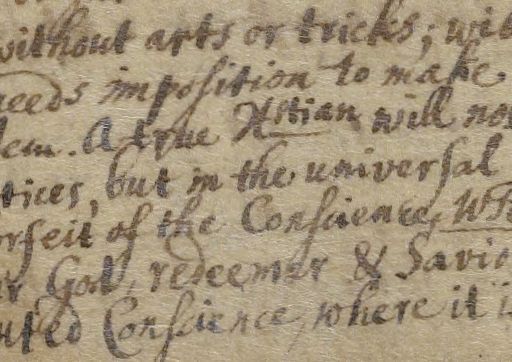 without arts or tricks; wit
needs imposition to make
dem. A true Xttian will no
tices, but in the universal
orfeit of the Conscience, Wh
r God, redeemer & Savio
uted Conscience, where it i